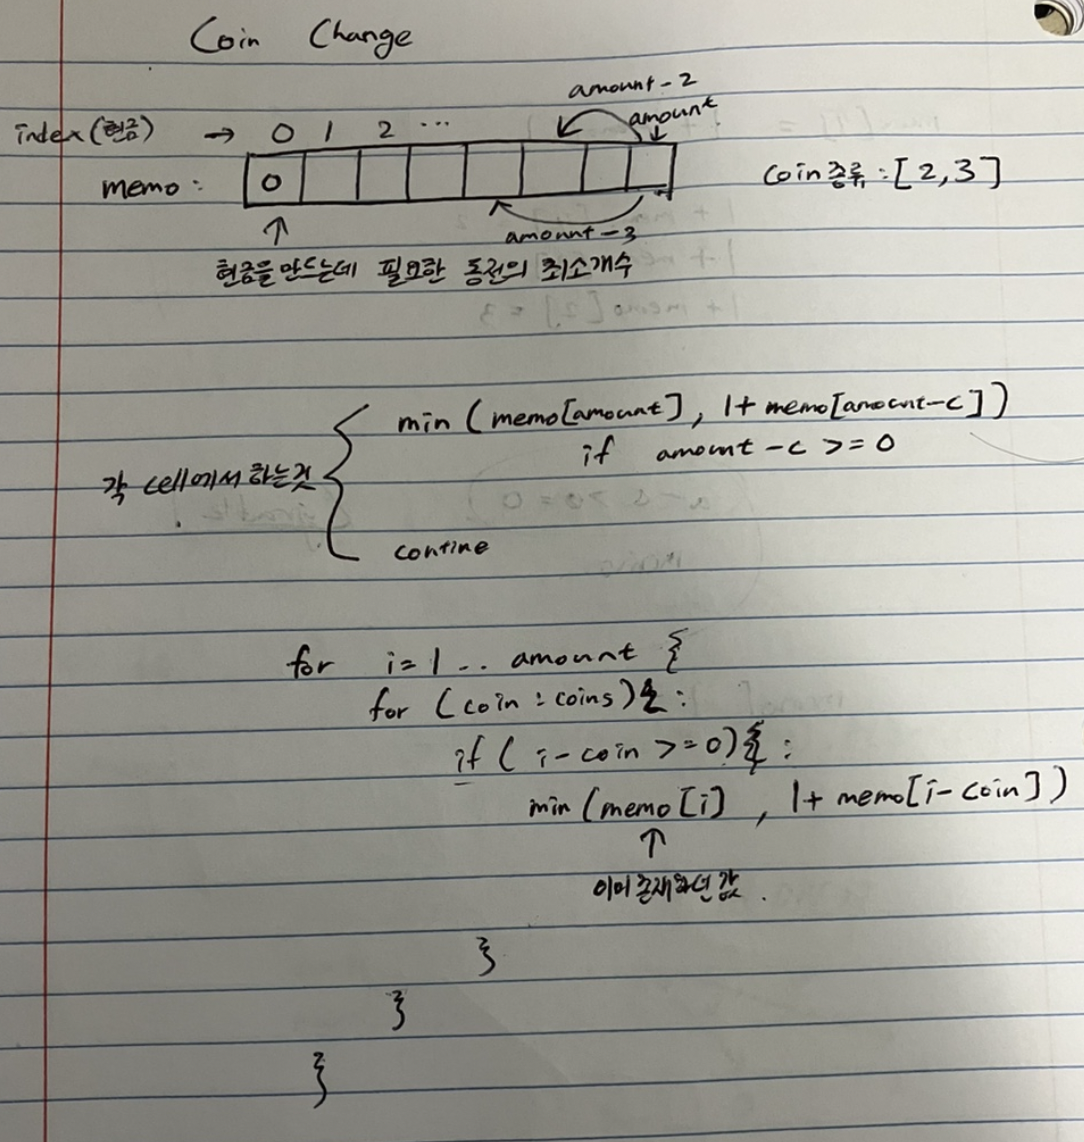 Coin Change
amount-2
amount
index(현금) → 0 1 2 ...
memo : 0
Coin종류 : [2,3]
amount-3
현금을 만드는데 필요한 동전의 최소개수
min (memo[amount], 1+memo[amount-c])
if amount-c >=0
각 cell에서 하는것
contine
for i=1 .. amount {
for (coin : coins){ :
if ( i-coin >=0){ :
min (memo[i] , 1+ memo[i-coin])
이미 존재하던 값.
}
}
}